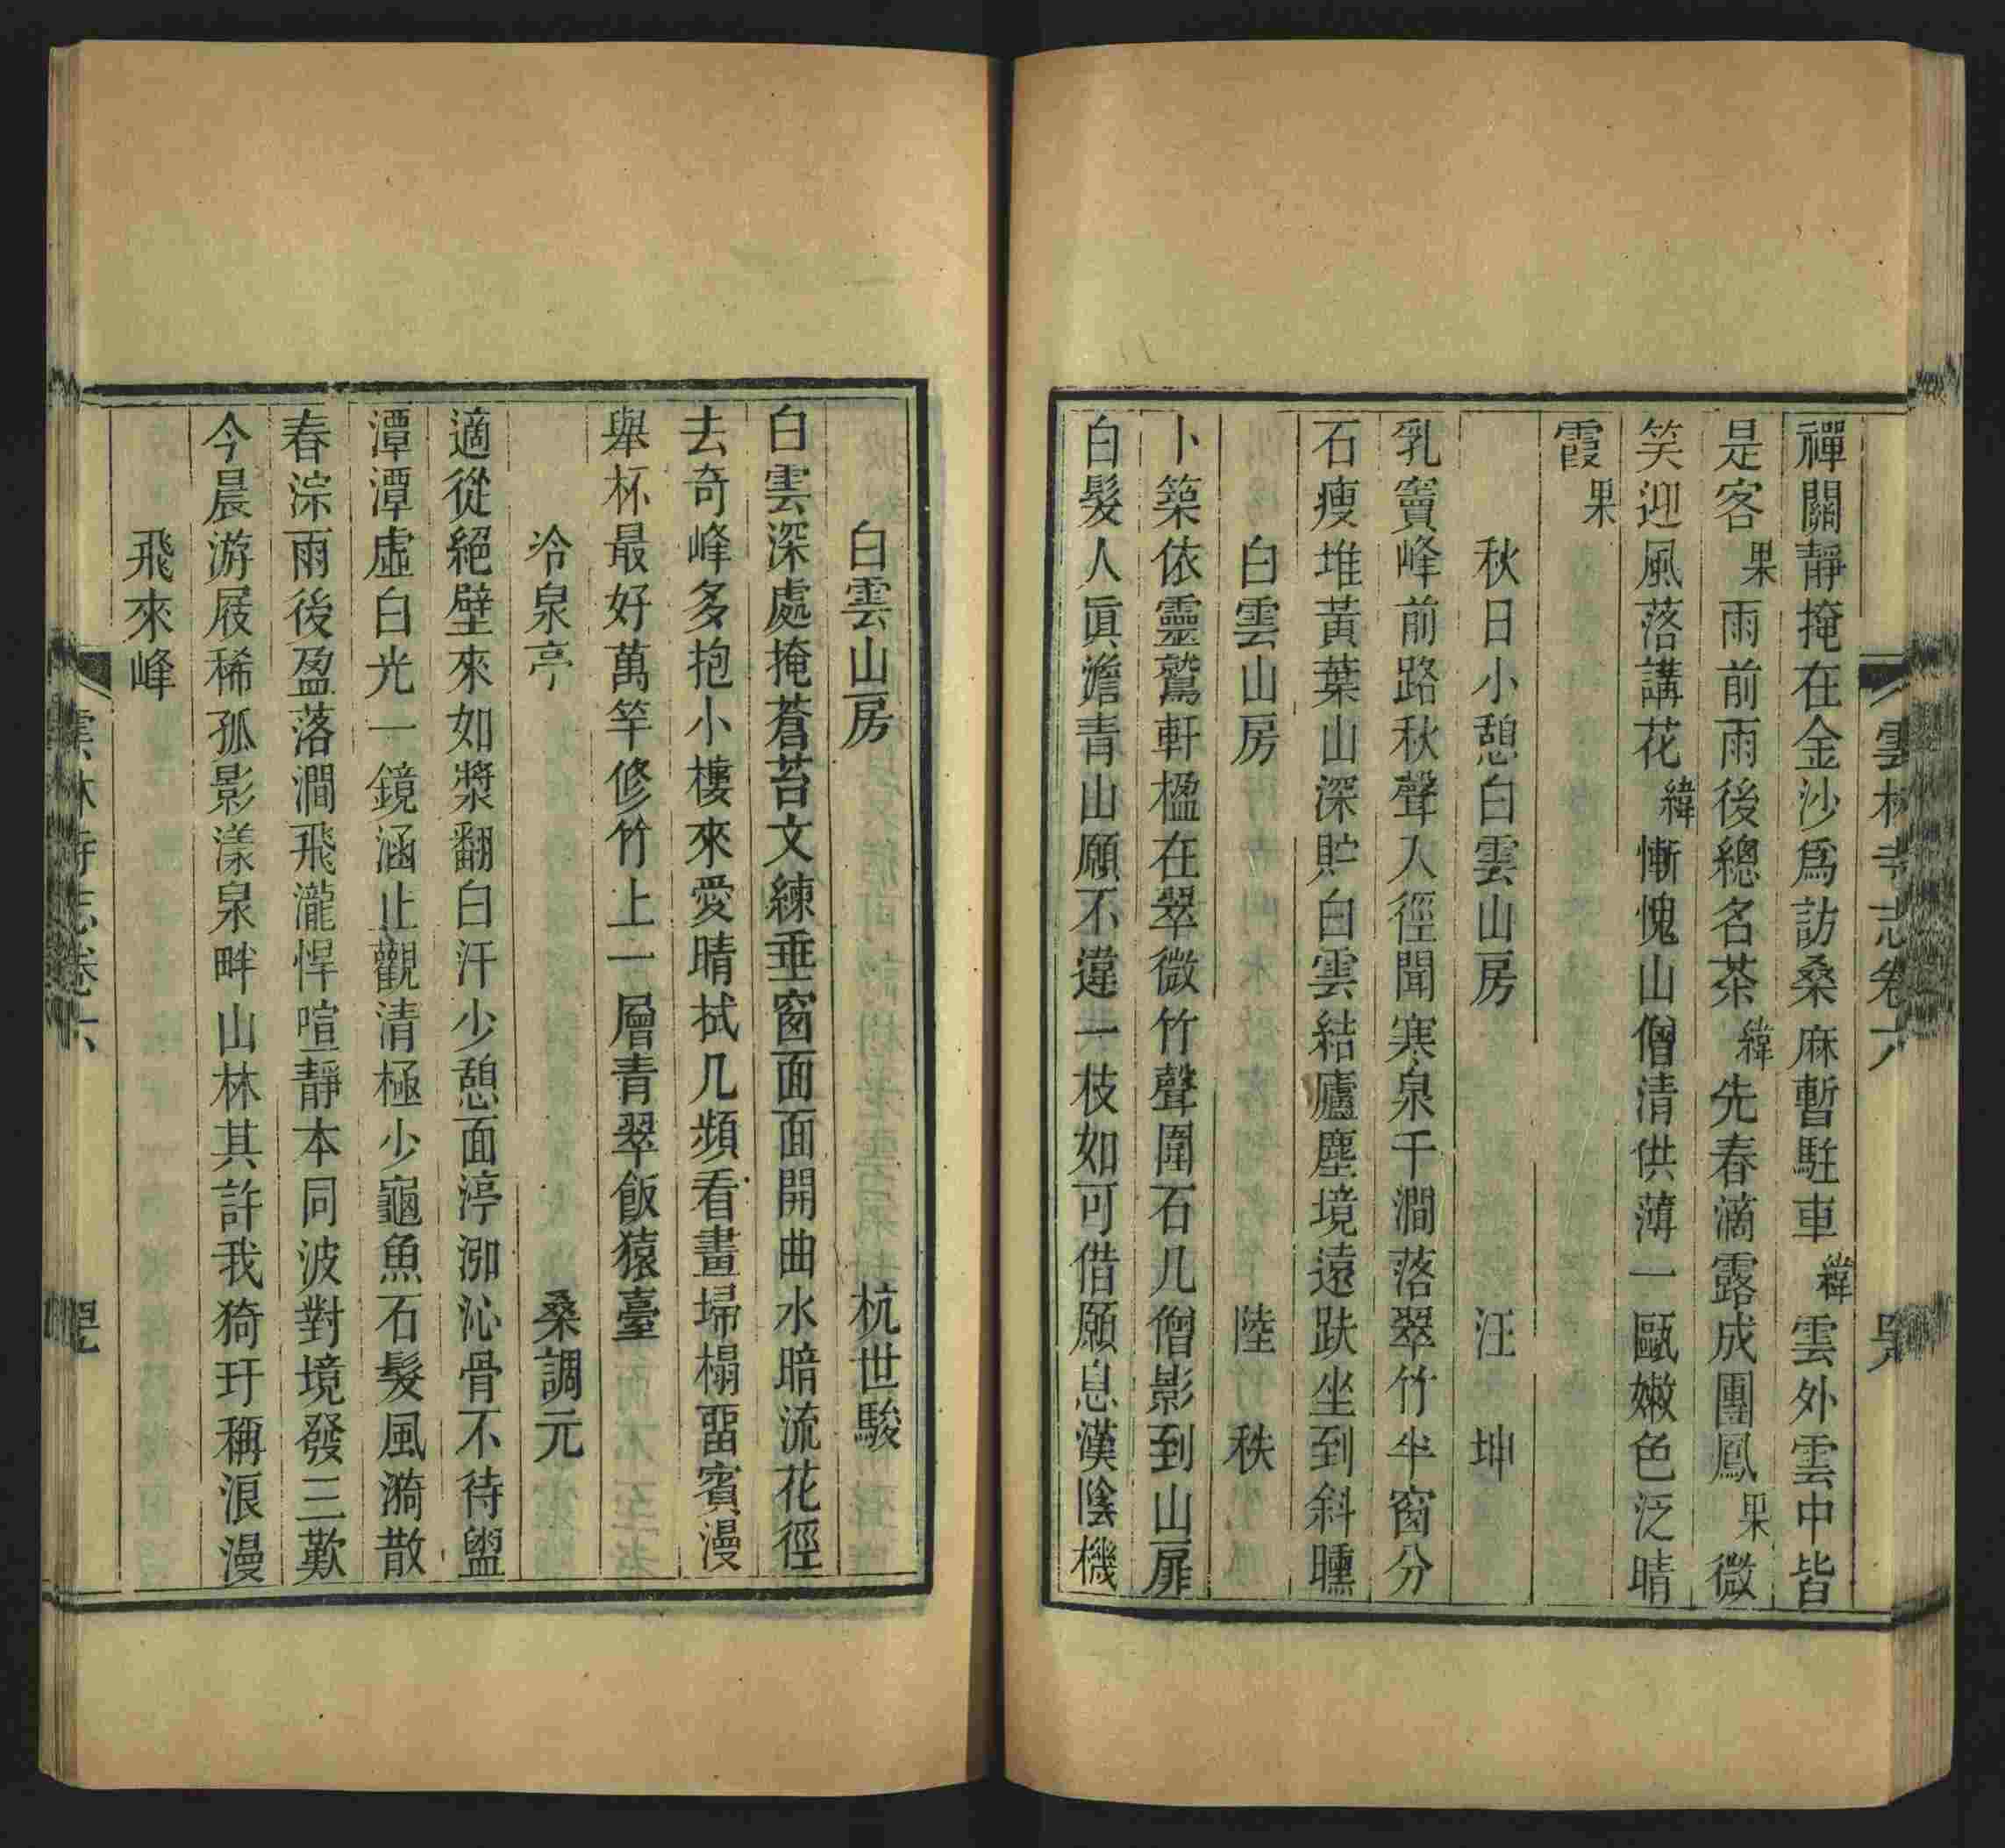 雲林寺志卷六
禪關靜掩在金沙爲訪桑麻暫駐車緯雲外雲中皆
是客果雨前雨後總名茶緯先春滴露成團鳳果微
笑迎風落講花緯慚愧山僧清供薄一甌嫩色泛晴
霞果
秋日小憩白雲山房 汪坤
乳竇峰前路秋聲入徑聞寒泉千澗落翠竹半窗分
石瘦堆黃葉山深貯白雲結廬塵境遠趺坐到斜曛
白雲山房 陸秩
卜築依靈鷲軒楹在翠微竹聲圍石几僧影到山扉
白髮人眞澹青山願不違一枝如可借願息漢陰機
白雲山房 杭世駿
白雲深處掩蒼苔文練垂窗面面開曲水暗流花徑
去奇峰多抱小樓來愛晴拭几頻看畫埽榻畱賓漫
舉杯最好萬竿修竹上一層青翠飯猿臺
冷泉亭 桑調元
適從絕壁來如漿翻白汗少憩面渟泖沁骨不待盥
潭潭虛白光一鏡涵止觀清極少龜魚石髮風漪散
春淙雨後盈落澗飛瀧悍喧靜本同波對境發三歎
今晨游屐稀孤影漾泉畔山林其許我猗玗稱浪漫
飛來峰
雲林寺志卷六